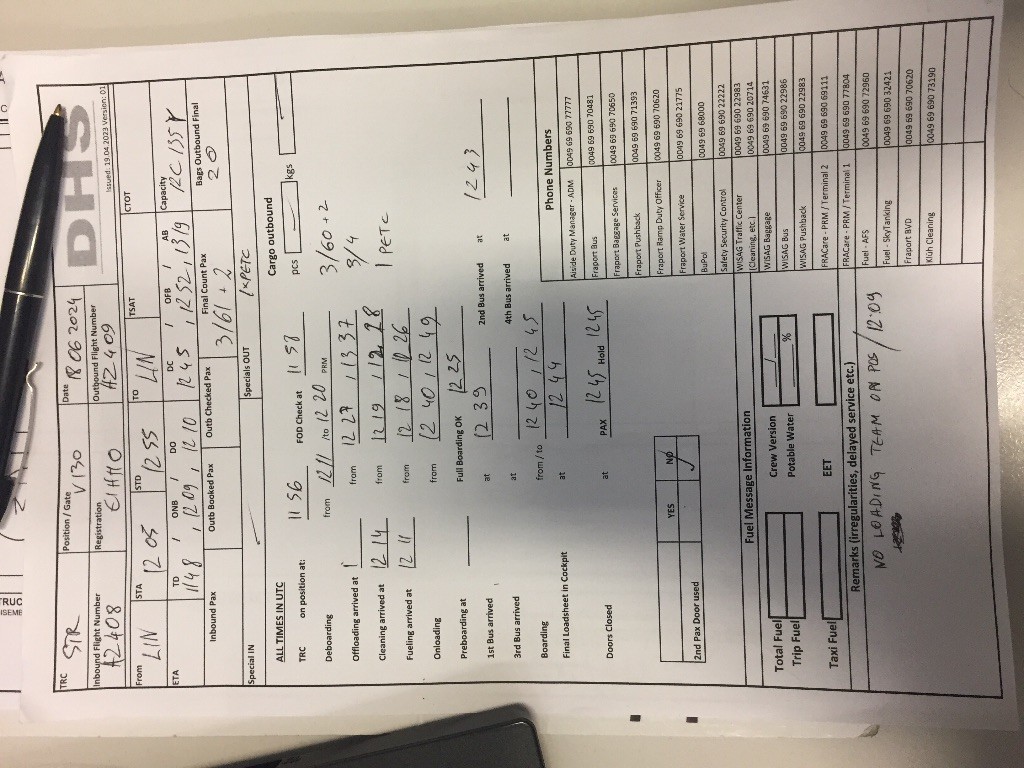 DHS
Issued: 19.04.2023 Version: 01
TRC STR Position / Gate V130 Date 18 06 2024
Inbound Flight Number AZ408 Registration EIHHO Outbound Flight Number AZ409
From LIN STA 1205 STD 1255 TO LIN TSAT CTOT
ETA TD 1148 ONB 1209 DO 1210 DC 1245 OFB 1252 AB 1319 Capacity
Inbound Pax Outb Booked Pax Outb Checked Pax 3/61 + 2 Final Count Pax Bags Outbound Final 20
Special IN Specials OUT 1xPETC
ALL TIMES IN UTC Cargo outbound
TRC on position at: 1156 FOD Check at 1157 pcs kgs
Deboarding from 1211 /to 1220 PRM 3/60+2
Offloading arrived at from 1227 1337 3/4
Cleaning arrived at 1214 from 1219 1228 1 PETC
Fueling arrived at 1211 from 1218 1226
Onloading from 1240 1249
Preboarding at Full Boarding OK 1225
1st Bus arrived at 1239 2nd Bus arrived at 1243
3rd Bus arrived at 4th Bus arrived at
Boarding from / to 1240 1245
Final Loadsheet in Cockpit at 1244
Doors Closed at PAX 1245 Hold 1245
YES NO
2nd Pax Door used
Phone Numbers
Airside Duty Manager - ADM 0049 69 690 77777
Fraport Bus 0049 69 690 70481
Fraport Baggage Services 0049 69 690 70650
Fraport Pushback 0049 69 690 71393
Fraport Ramp Duty Officer 0049 69 690 70620
Fraport Water Service 0049 69 690 21775
BuPol 0049 69 68000
Safety Security Control 0049 69 690 22222
WISAG Traffic Center 0049 69 690 22983
(Cleaning, etc.) 0049 69 690 20714
WISAG Baggage 0049 69 690 74631
WISAG Bus 0049 69 690 22986
WISAG Pushback 0049 69 690 22983
FRACare - PRM / Terminal 2 0049 69 690 69111
FRACare - PRM / Terminal 1 0049 69 690 77804
Fuel - AFS 0049 69 690 72960
Fuel - SkyTanking 0049 69 690 32421
Fraport BVD 0049 69 690 70620
Klüh Cleaning 0049 69 690 73190
Fuel Message Information
Total Fuel Crew Version /
Trip Fuel Potable Water %
Taxi Fuel EET
Remarks (irregularities, delayed service etc.)
NO LOADING TEAM ON POS / 12:09